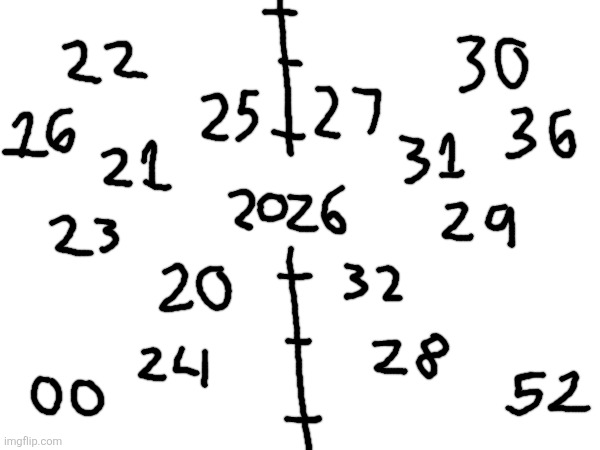 22
30
25
27
16
36
21
31
2026
23
29
20
32
24
28
00
52
imgflip.com